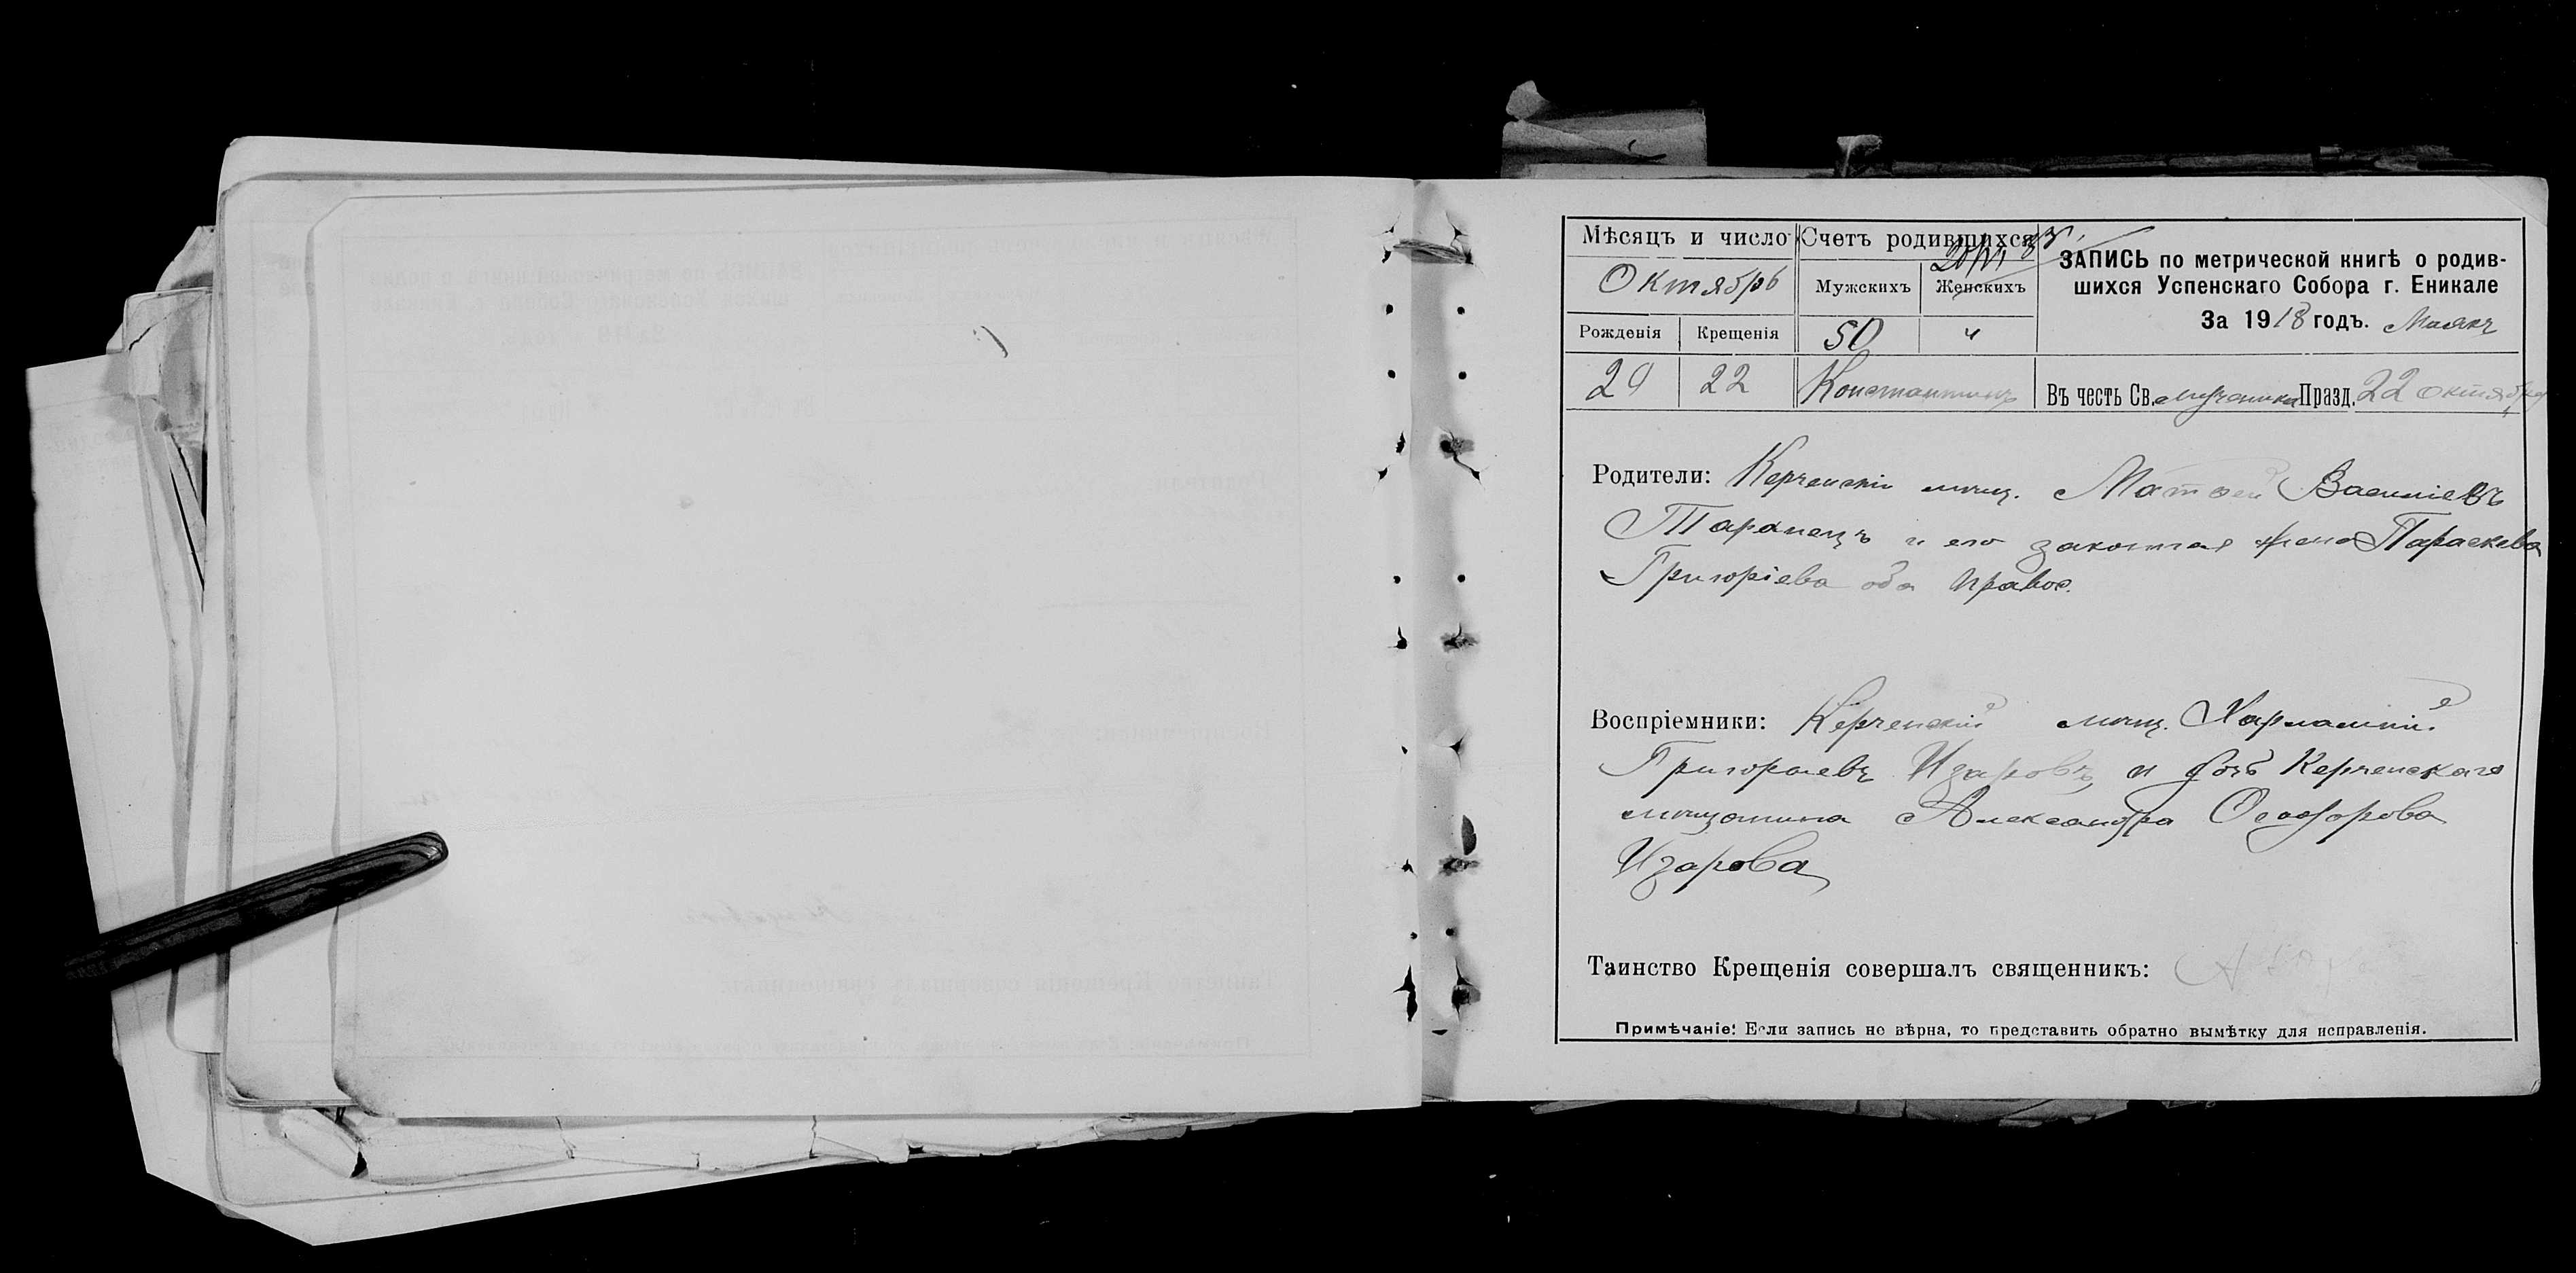 Мѣсяцъ и число
Октябрь
Рожденія Крещенія
Счетъ родившихся
Мужскихъ Женскихъ
50 "
ЗАПИСЬ по метрической книгѣ о родив-
шихся Успенскаго Собора г. Еникале
За 1918 годъ. Маякъ
22 Константинъ Въ честь Св. мученика Празд. 22 октября
Родители: Керченскій мѣщ. Матѳей Василіевъ
Таранецъ и его законная жена Параскева
Григоріева оба правос.
Воспріемники: Керченскій мѣщ. Харлампій
Григорьевъ Изаровъ и дочь Керченскаго
мѣщанина Александра Ѳеодорова
Изарова
Таинство Крещенія совершалъ священникъ:
Примѣчаніе: Если запись не вѣрна, то представить обратно вымѣтку для исправленія.